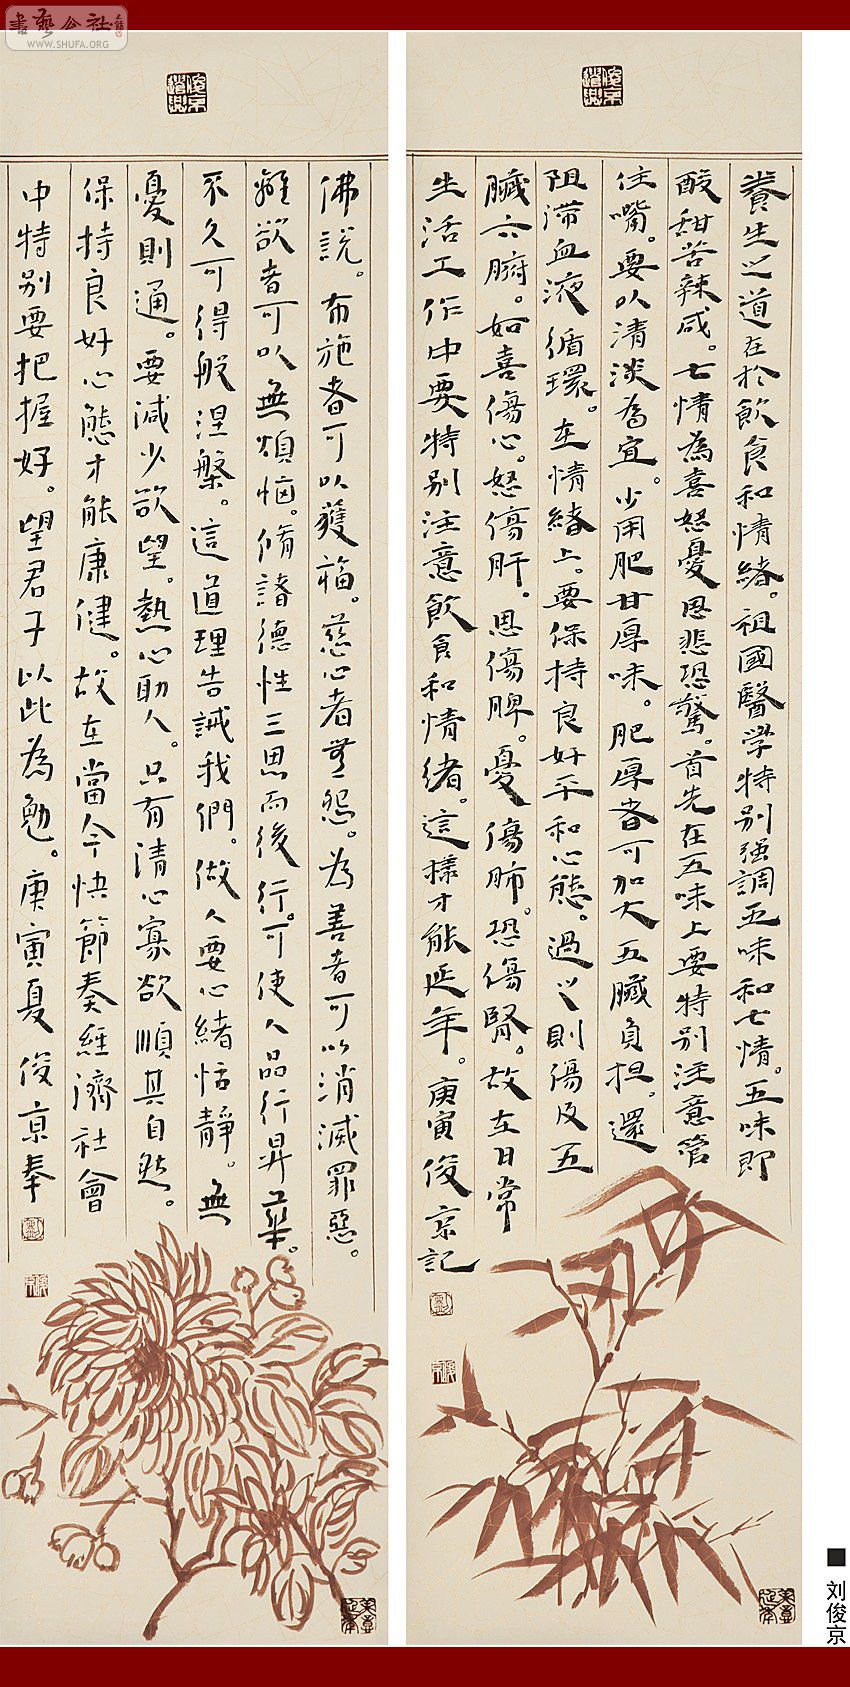 書藝公社
WWW.SHUFA.ORG
養生之道在於飲食和情緒。祖國醫学特别强調五味和七情。五味即
酸甜苦辣咸。七情為喜怒憂思悲恐驚。首先在五味上要特别注意管
住嘴。要以清淡為宜。少用肥甘厚味。肥厚者可加大五臟負担。還
阻滞血液循環。在情緒上。要保持良好平和心態。過之則傷及五
臟六腑。如喜傷心。怒傷肝。思傷脾。憂傷肺。恐傷腎。故在日常
生活工作中要特别注意飲食和情緒。這樣才能延年。庚寅俊京記
佛說。布施者可以獲福。慈心者無怨。為善者可以消滅罪惡。
離欲者可以無煩惱。脩諸德性三思而後行。可使人品行昇華。
不久可得般涅槃。這道理告誡我們。做人要心緒恬靜。無
憂則通。要減少欲望。熱心助人。只有清心寡欲順其自然。
保持良好心態才能康健。故在當今快節奏經濟社會
中特别要把握好。望君子以此為勉。庚寅夏俊京奉
■ 刘俊京